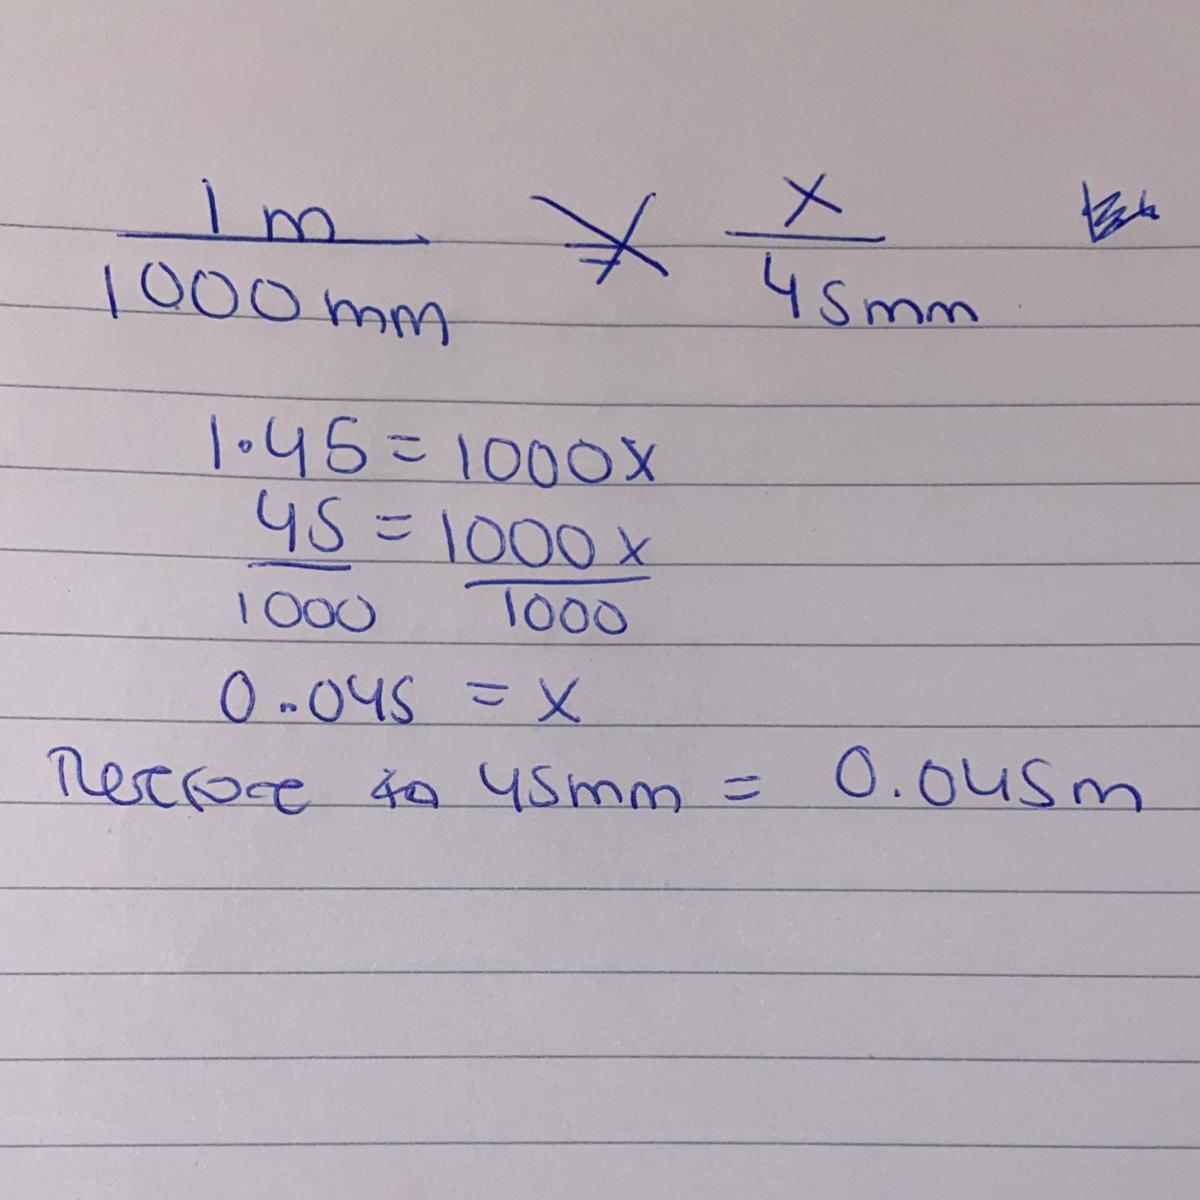 1 m = x
1000 mm 45mm
1 · 45 = 1000x
45 = 1000 x
1000 1000
0..045 = x
Therefore 45mm = 0.045m